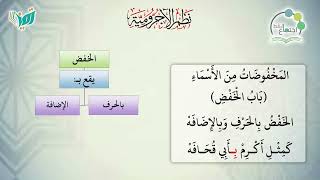 نظم الآجرومية
المَخْفُوضَاتُ مِنَ الأَسْمَاءِ
(بَابُ الْخَفْضِ)
الخَفْضُ بِالحَرْفِ وَبِالإِضَافَهْ
كَمِثْلِ أَكْرِمْ بِأَبِي قُحَافَهْ
الخفض
يقع بـ:
بالحرف
الإضافة